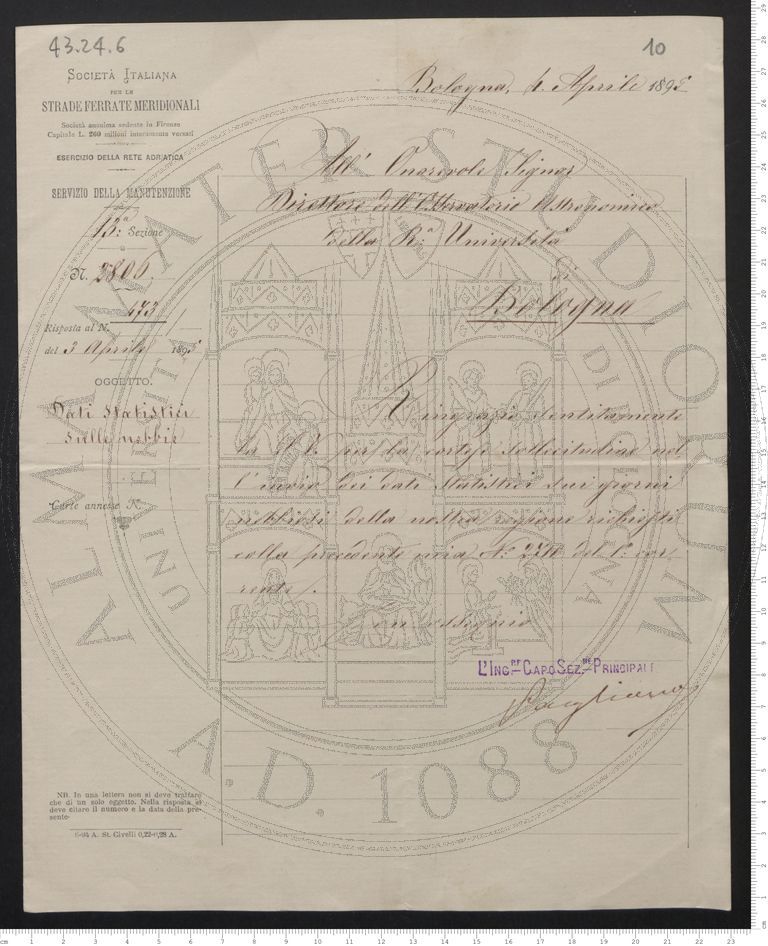 43.24.6
10
SOCIETÀ ITALIANA
PER LE
STRADE FERRATE MERIDIONALI
Società anonima sedente in Firenze
Capitale L. 260 milioni interamente versati
ESERCIZIO DELLA RETE ADRIATICA
SERVIZIO DELLA MANUTENZIONE
13ª Sezione
N. 2806.
473
Risposta al N.
del 3 Aprile 1895
OGGETTO.
Dati statistici
sulle nebbie
Carte annesse N.
Bologna, 4 Aprile 1895
All' Onorevole Signor
Direttore dell'Osservatorio Astronomico
della R.ª Università
di
Bologna
Ringrazio sentitamente
la S.V. per la cortese sollecitudine nel
l'invio dei dati statistici sui giorni
nebbiosi della nostra regione richiesti
colla precedente mia Nº del 1º cor
rente.
Con ossequio
L'ING.RE CAPO SEZ.NE PRINCIPALE
NB. In una lettera non si deve trattare
che di un solo oggetto. Nella risposta si
deve citare il numero e la data della pre-
sente.
6-94 A. St. Civelli 0,22-0,28 A.
ALMA MATER STUDIORUM
A.D. 1088